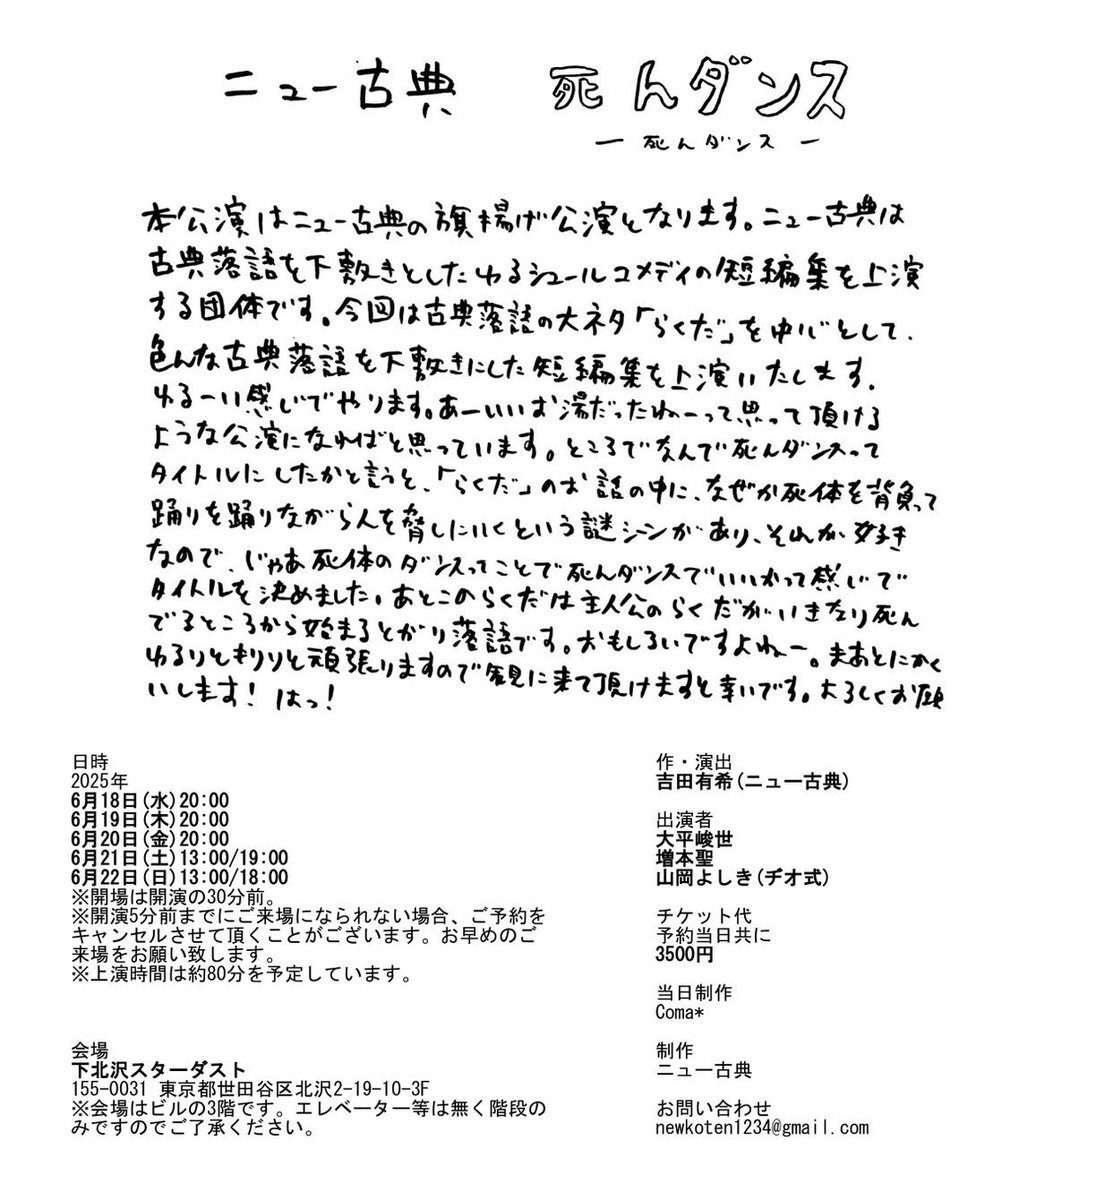 ニュー古典 死んダンス
― 死んダンス ―
本公演はニュー古典の旗揚げ公演となります。ニュー古典は
古典落語を下敷きとしたゆるシュールコメディの短編集を上演
する団体です。今回は古典落語の大ネタ「らくだ」を中心として、
色んな古典落語を下敷きにした短編集を上演いたします。
ゆるーい感じでやります。あーいいお湯だったねーって思って頂ける
ような公演になればと思っています。ところでなんで死んダンスって
タイトルにしたかと言うと、「らくだ」のお話の中に、なぜか死体を背負って
踊りを踊りながら人を脅しにいくという謎シーンがあり、それが好き
なので、じゃあ死体のダンスってことで死んダンスでいいかって感じで
タイトルを決めました。あとこのらくだは主人公のらくだがいきなり死ん
でるところから始まるとがり落語です。おもしろいですよねー。まあとにかく
ゆるりともりりと頑張りますので観に来て頂けますと幸いです。よろしくお願
いします! はっ!
日時
2025年
6月18日(水)20:00
6月19日(木)20:00
6月20日(金)20:00
6月21日(土)13:00/19:00
6月22日(日)13:00/18:00
※開場は開演の30分前。
※開演5分前までにご来場になられない場合、ご予約を
キャンセルさせて頂くことがございます。お早めのご
来場をお願い致します。
※上演時間は約80分を予定しています。
会場
下北沢スターダスト
155-0031 東京都世田谷区北沢2-19-10-3F
※会場はビルの3階です。エレベーター等は無く階段の
みですのでご了承ください。
作・演出
吉田有希(ニュー古典)
出演者
大平峻世
増本聖
山岡よしき(ヂオ式)
チケット代
予約当日共に
3500円
当日制作
Coma*
制作
ニュー古典
お問い合わせ
newkoten1234@gmail.com